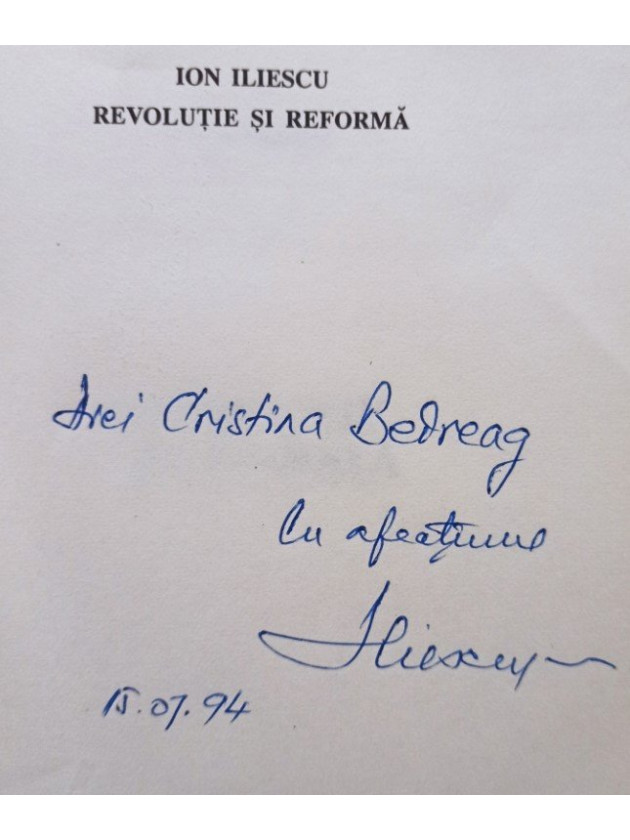 ION ILIESCU
REVOLUȚIE ȘI REFORMĂ
Cristina Bedreag
Cu afecțiune
Iliescu
15.07.94